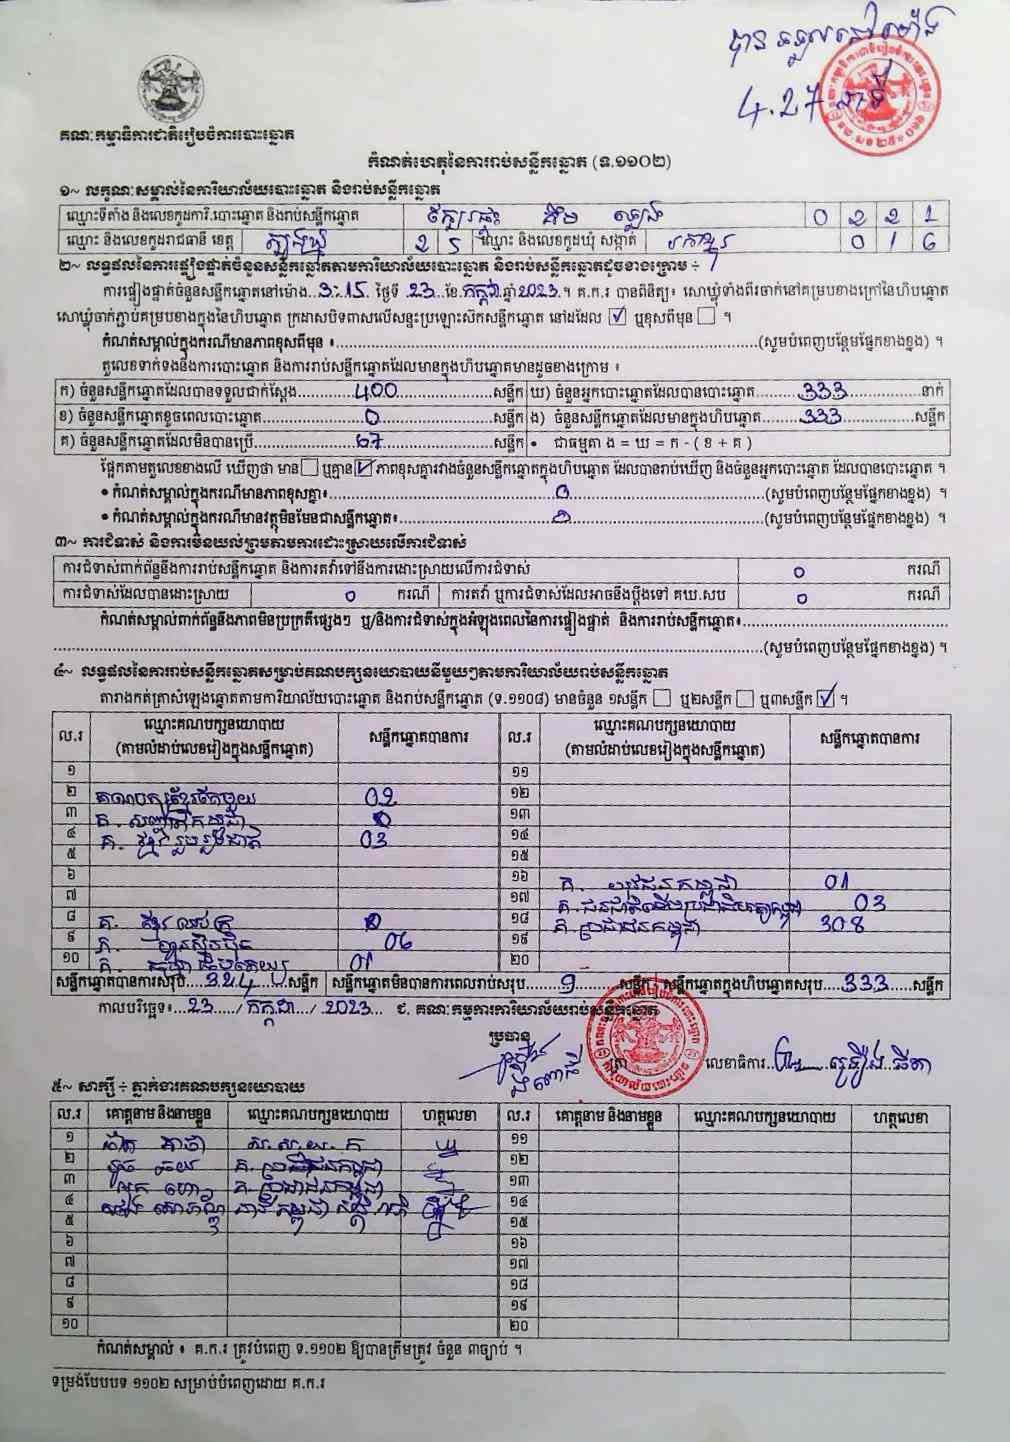 បាន ទទួលនៅម៉ោង
4.27 នាទី
គណៈកម្មាធិការជាតិរៀបចំការបោះឆ្នោត
កំណត់ហេតុនៃការរាប់សន្លឹកឆ្នោត (ទ.១១០២)
១~ លក្ខណៈសម្គាល់នៃការិយាល័យបោះឆ្នោត និងរាប់សន្លឹកឆ្នោត
ឈ្មោះទីតាំង និងលេខកូដការិ.បោះឆ្នោត និងរាប់សន្លឹកឆ្នោត 0 2 2 1
ឈ្មោះ និងលេខកូដរាជធានី ខេត្ត ត្បូងឃ្មុំ 2 5 ឈ្មោះ និងលេខកូដឃុំ សង្កាត់ 0 1 6
២~ លទ្ធផលនៃការផ្ទៀងផ្ទាត់ចំនួនសន្លឹកឆ្នោតតាមការិយាល័យបោះឆ្នោត និងរាប់សន្លឹកឆ្នោតដូចខាងក្រោម ÷
ការផ្ទៀងផ្ទាត់ចំនួនសន្លឹកឆ្នោតនៅម៉ោង 3:15 ថ្ងៃទី 23 ខែ កក្កដា ឆ្នាំ 2023 ។ គ.ក.រ បានពិនិត្យ៖ សោឃ្លុំទាំងពីរចាក់នៅគម្របខាងក្រៅនៃហិបឆ្នោត
សោឃ្លុំចាក់ភ្ជាប់គម្របខាងក្នុងនៃហិបឆ្នោត ក្រដាសបិទពាសលើសន្ទះប្រឡោះស៊កសន្លឹកឆ្នោត នៅដដែល ☑ ឬខុសពីមុន ☐ ។
កំណត់សម្គាល់ក្នុងករណីមានភាពខុសពីមុន ៖ (សូមបំពេញបន្ថែមផ្នែកខាងខ្នង) ។
តួលេខទាក់ទងនឹងការបោះឆ្នោត និងការរាប់សន្លឹកឆ្នោតដែលមានក្នុងហិបឆ្នោតមានដូចខាងក្រោម ៖
ក) ចំនួនសន្លឹកឆ្នោតដែលបានទទួលជាក់ស្តែង 400 សន្លឹក ឃ) ចំនួនអ្នកបោះឆ្នោតដែលបានបោះឆ្នោត 333 នាក់
ខ) ចំនួនសន្លឹកឆ្នោតខូចពេលបោះឆ្នោត 0 សន្លឹក ង) ចំនួនសន្លឹកឆ្នោតដែលមានក្នុងហិបឆ្នោត 333 សន្លឹក
គ) ចំនួនសន្លឹកឆ្នោតដែលមិនបានប្រើ 67 សន្លឹក • ជាធម្មតា ង = ឃ = ក - ( ខ + គ )
ផ្អែកតាមតួលេខខាងលើ ឃើញថា មាន ☐ ឬគ្មាន ☑ ភាពខុសគ្នារវាងចំនួនសន្លឹកឆ្នោតក្នុងហិបឆ្នោត ដែលបានរាប់ឃើញ និងចំនួនអ្នកបោះឆ្នោត ដែលបានបោះឆ្នោត ។
• កំណត់សម្គាល់ក្នុងករណីមានភាពខុសគ្នា៖ 0 (សូមបំពេញបន្ថែមផ្នែកខាងខ្នង) ។
• កំណត់សម្គាល់ក្នុងករណីមានវត្ថុមិនមែនជាសន្លឹកឆ្នោត៖ 0 (សូមបំពេញបន្ថែមផ្នែកខាងខ្នង) ។
៣~ ការជំទាស់ និងការមិនយល់ព្រមតាមការដោះស្រាយលើការជំទាស់
ការជំទាស់ពាក់ព័ន្ធនឹងការរាប់សន្លឹកឆ្នោត និងការតវ៉ាទៅនឹងការដោះស្រាយលើការជំទាស់ 0 ករណី
ការជំទាស់ដែលបានដោះស្រាយ 0 ករណី ការតវ៉ា ឬការជំទាស់ដែលអាចនឹងប្តឹងទៅ គឃ.សប 0 ករណី
កំណត់សម្គាល់ពាក់ព័ន្ធនឹងភាពមិនប្រក្រតីផ្សេងៗ ឬ/និងការជំទាស់ក្នុងអំឡុងពេលនៃការផ្ទៀងផ្ទាត់ និងការរាប់សន្លឹកឆ្នោត៖
(សូមបំពេញបន្ថែមផ្នែកខាងខ្នង) ។
៤~ លទ្ធផលនៃការរាប់សន្លឹកឆ្នោតសម្រាប់គណបក្សនយោបាយនីមួយៗតាមការិយាល័យរាប់សន្លឹកឆ្នោត
តារាងកត់ត្រាសំឡេងឆ្នោតតាមការិយាល័យបោះឆ្នោត និងរាប់សន្លឹកឆ្នោត (ទ.១១០៨) មានចំនួន ១សន្លឹក ☐ ឬ២សន្លឹក ☐ ឬ៣សន្លឹក ☑ ។
ល.រ ឈ្មោះគណបក្សនយោបាយ (តាមលំដាប់លេខរៀងក្នុងសន្លឹកឆ្នោត) សន្លឹកឆ្នោតបានការ ល.រ ឈ្មោះគណបក្សនយោបាយ (តាមលំដាប់លេខរៀងក្នុងសន្លឹកឆ្នោត) សន្លឹកឆ្នោតបានការ
១ ១១
២ គណបក្សខ្មែរតែមួយ 02 ១២
៣ 0 ១៣
៤ គ. ខ្មែររួបរួមជាតិ 03 ១៤
៥ ១៥
៦ ១៦ គ. យុវជនកម្ពុជា 01
៧ ១៧ គ.ជនជាតិដើមប្រជាធិបតេយ្យកម្ពុជា 03
៨ 0 ១៨ គ.ប្រជាជនកម្ពុជា 308
៩ គ. ហ្វ៊ុនស៊ិនប៉ិច 06 ១៩
១០ 01 ២០
សន្លឹកឆ្នោតបានការសរុប 324 សន្លឹក សន្លឹកឆ្នោតមិនបានការពេលរាប់សរុប 9 សន្លឹក សន្លឹកឆ្នោតក្នុងហិបឆ្នោតសរុប 333 សន្លឹក
កាលបរិច្ឆេទ៖ 23 / កក្កដា / 2023 ជ. គណៈកម្មការការិយាល័យរាប់សន្លឹកឆ្នោត
ប្រធាន
ត្រា លេខាធិការ
៥~ សាក្សី ÷ ភ្នាក់ងារគណបក្សនយោបាយ
ល.រ គោត្តនាម និងនាមខ្លួន ឈ្មោះគណបក្សនយោបាយ ហត្ថលេខា ល.រ គោត្តនាម និងនាមខ្លួន ឈ្មោះគណបក្សនយោបាយ ហត្ថលេខា
១ ស.ស.យ.ក ១១
២ គ.ប្រជាជនកម្ពុជា ១២
៣ គ.ប្រជាជនកម្ពុជា ១៣
៤ ១៤
៥ ១៥
៦ ១៦
៧ ១៧
៨ ១៨
៩ ១៩
១០ ២០
កំណត់សម្គាល់ ៖ គ.ក.រ ត្រូវបំពេញ ទ.១១០២ ឱ្យបានត្រឹមត្រូវ ចំនួន ៣ច្បាប់ ។
ទម្រង់បែបបទ ១១០២ សម្រាប់បំពេញដោយ គ.ក.រ